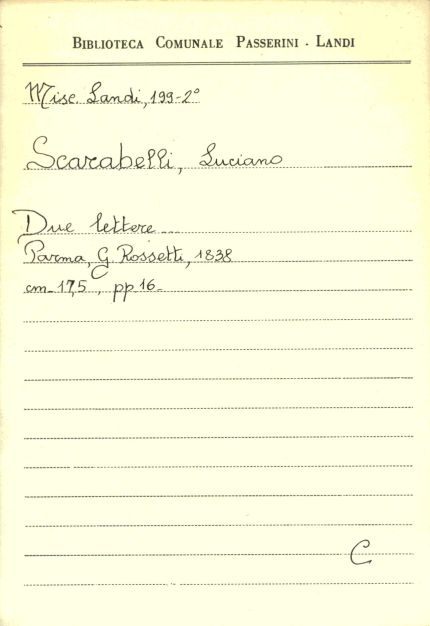 BIBLIOTECA COMUNALE PASSERINI - LANDI
Misc. Landi, 199-2°
Scarabelli, Luciano
Due lettere
Parma, G. Rossetti, 1838
cm. 17,5, pp. 16.
C